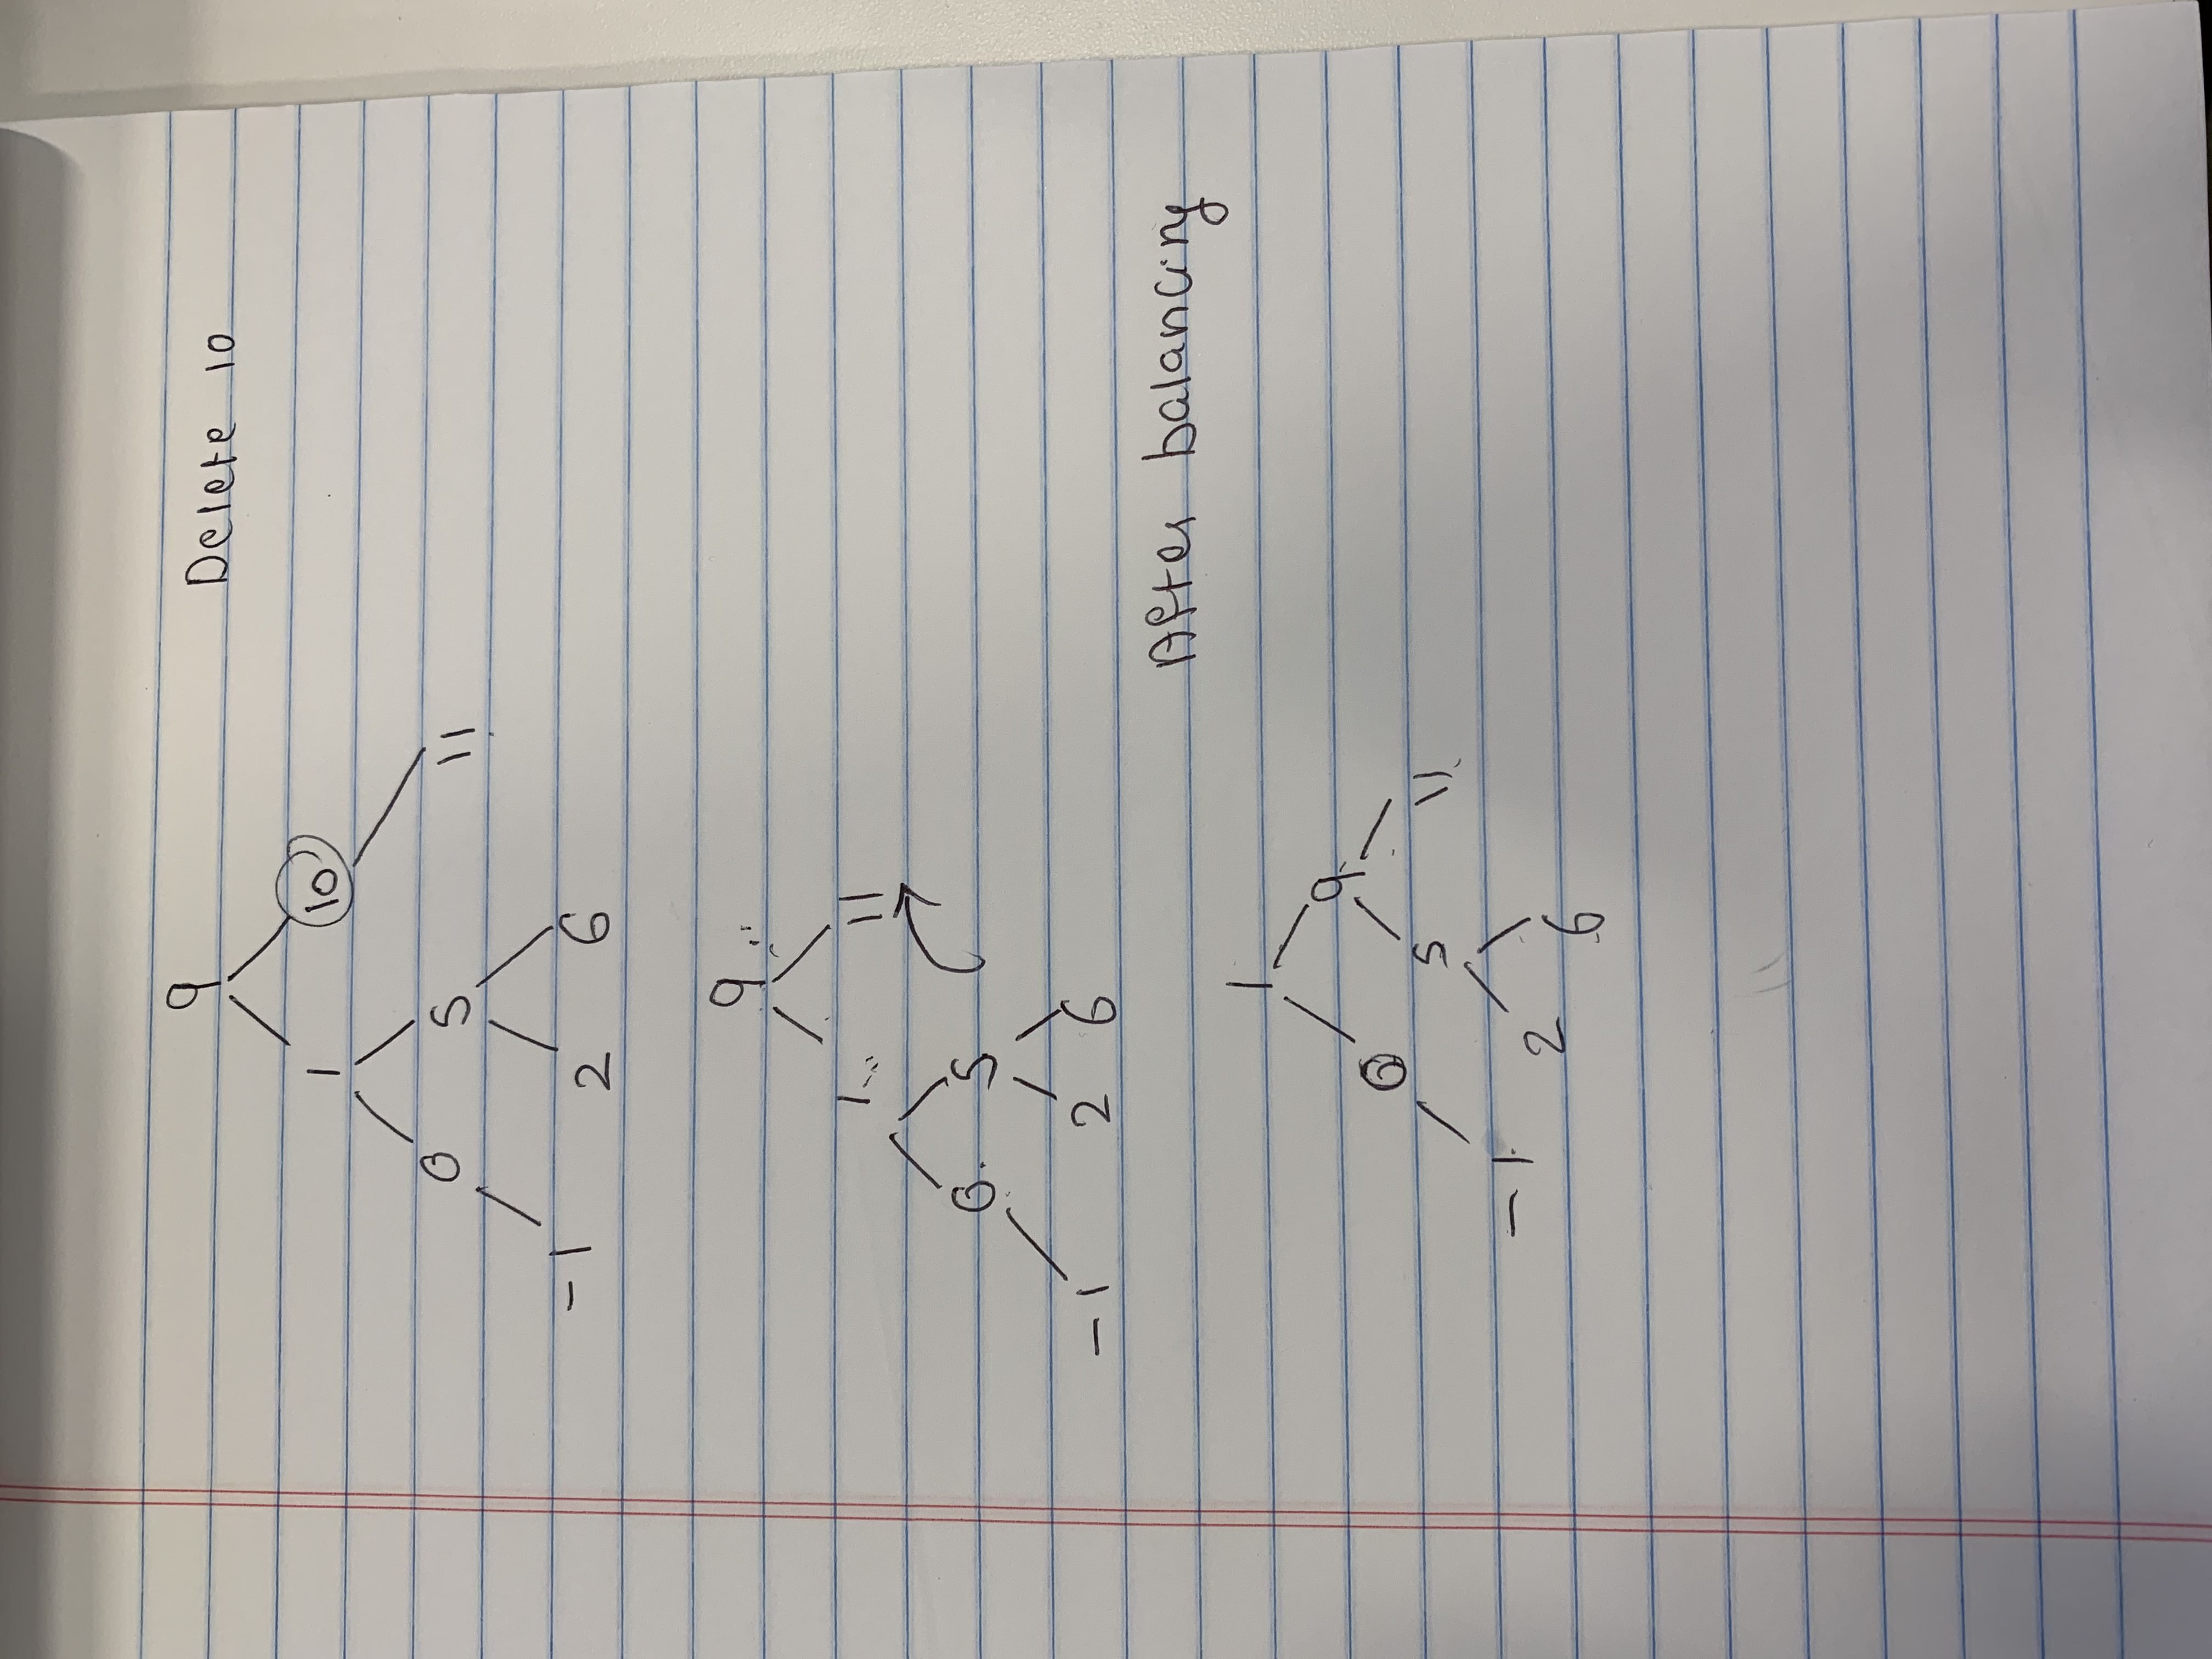 9 Delete 10
1 10
0 5 11
-1 2 6
9
1 11
0 5
-1 2 6
After balancing
1
9
0
5 11
-1 2
6